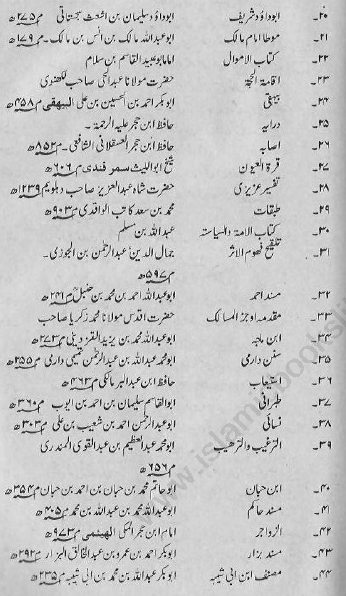 ۲۰۔ ابوداؤد شریف ابوداؤد سلیمان بن اشعث سجستانی م ۲۷۵ھ
۲۱۔ موطا امام مالک ابوعبداللہ مالک بن انس بن مالک۔ م ۱۷۹ھ
۲۲۔ کتاب الاموال امام ابوعبید القاسم بن سلام
۲۳۔ اقامۃ الحجۃ حضرت مولانا عبدالحئی صاحب لکھنوی
۲۴۔ بیہقی ابوبکر احمد بن الحسین بن علی البیہقی م ۴۵۸ھ
۲۵۔ درایہ حافظ ابن حجر علیہ الرحمۃ۔
۲۶۔ اصابہ حافظ ابن حجر العسقلانی الشافعی۔ م ۸۵۲ھ
۲۷۔ قرۃ العیون شیخ ابواللیث سمرقندی م ۶۰۶ھ
۲۸۔ تفسیر عزیزی حضرت شاہ عبدالعزیز صاحب دہلوی م ۱۲۳۹ھ
۲۹۔ طبقات محمد بن سعد کاتب الواقدی م ۹۰۳ھ
۳۰۔ کتاب الامامۃ والسیاستہ عبداللہ بن مسلم
۳۱۔ تلقیح فہوم الاثر جمال الدین عبدالرحمٰن بن الجوزی۔
م ۵۹۷ھ
۳۲۔ مسند احمد ابوعبداللہ احمد بن محمد بن حنبل م ۲۴۱ھ
۳۳۔ مقدمہ اوجز المسالک حضرت اقدس مولانا محمد زکریا صاحب
۳۴۔ ابن ماجہ ابوعبداللہ محمد بن یزید القزوینی م ۲۷۳ھ
۳۵۔ سنن دارمی ابومحمد عبداللہ بن عبدالرحمٰن تمیمی دارمی م ۲۵۵ھ
۳۶۔ استیعاب حافظ ابن عبدالبر مالکی م ۴۶۳ھ
۳۷۔ طبرانی ابوالقاسم سلیمان بن احمد بن ایوب م ۳۶۰ھ
۳۸۔ نسائی ابوعبدالرحمٰن احمد بن شعیب بن علی م ۳۰۳ھ
۳۹۔ الترغیب والترھیب ابومحمد عبدالعظیم بن عبدالقوی المنذری
م ۶۵۶ھ
۴۰۔ ابن حبان ابوحاتم محمد بن حبان بن احمد بن حبان م ۳۵۴ھ
۴۱۔ مسند حاکم ابوعبداللہ محمد بن عبداللہ بن محمد م ۴۰۵ھ
۴۲۔ الزواجر امام ابن حجر المکی الھیتمی م ۹۷۳ھ
۴۳۔ مسند بزار ابوبکر احمد بن عمرو بن عبدالخالق البزار م ۲۹۲ھ
۴۴۔ مصنف ابن ابی شیبہ ابوبکر عبداللہ بن محمد بن ابی شیبہ م ۲۳۵ھ